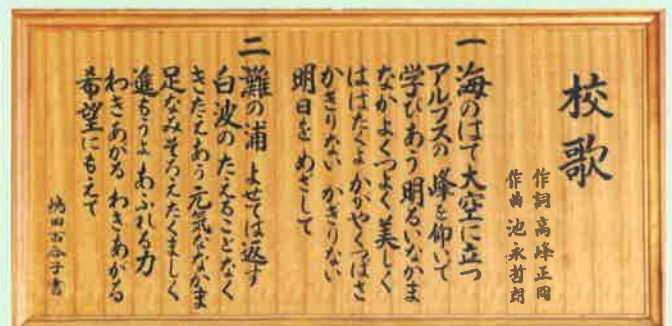 校歌
作詞 高峰正岡
作曲 池永哲朗
一 海のはて大空に立つ
アルプスの 峰を仰いで
学びあう 明るいなかま
なかよくつよく 美しく
ははたくよ かがやくつばさ
かぎりない かぎりない
明日を めざして
二 灘の浦 よせては返す
白波のたえることなく
きたえあう 元気ななかま
足なみそろえたくましく
進もうよ あふれる力
わきあがる わきあがる
希望にもえて
嶋田百合子書